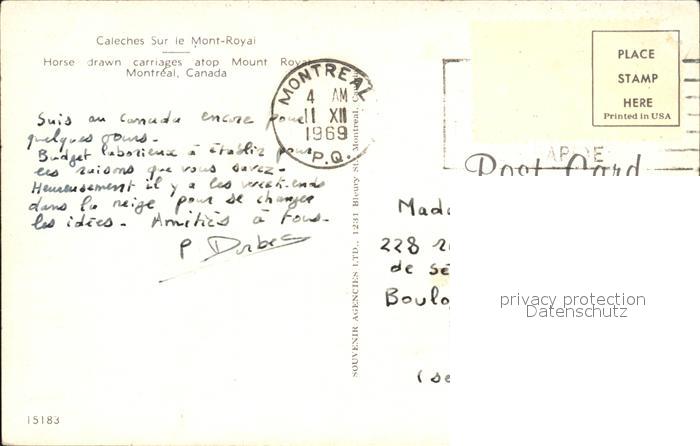 Caleches Sur le Mont-Royal
Horse drawn carriages atop Mount Royal
Montréal, Canada
Suis au Canada encore pour
quelques jours.
Budget laborieux à établir pour
les raisons que vous savez.
Heureusement il y a les week-ends
dans la neige pour se changer
les idées. Amitiés à tous.
P
15183
MONTREAL
4 AM
11 XII
1969
P.Q.
SOUVENIR AGENCIES LTD., 1231 Bleury St., Montreal,
PLACE
STAMP
HERE
Printed in USA
Post Card
Mada
228
de sé
Boulo
(se
privacy protection
Datenschutz